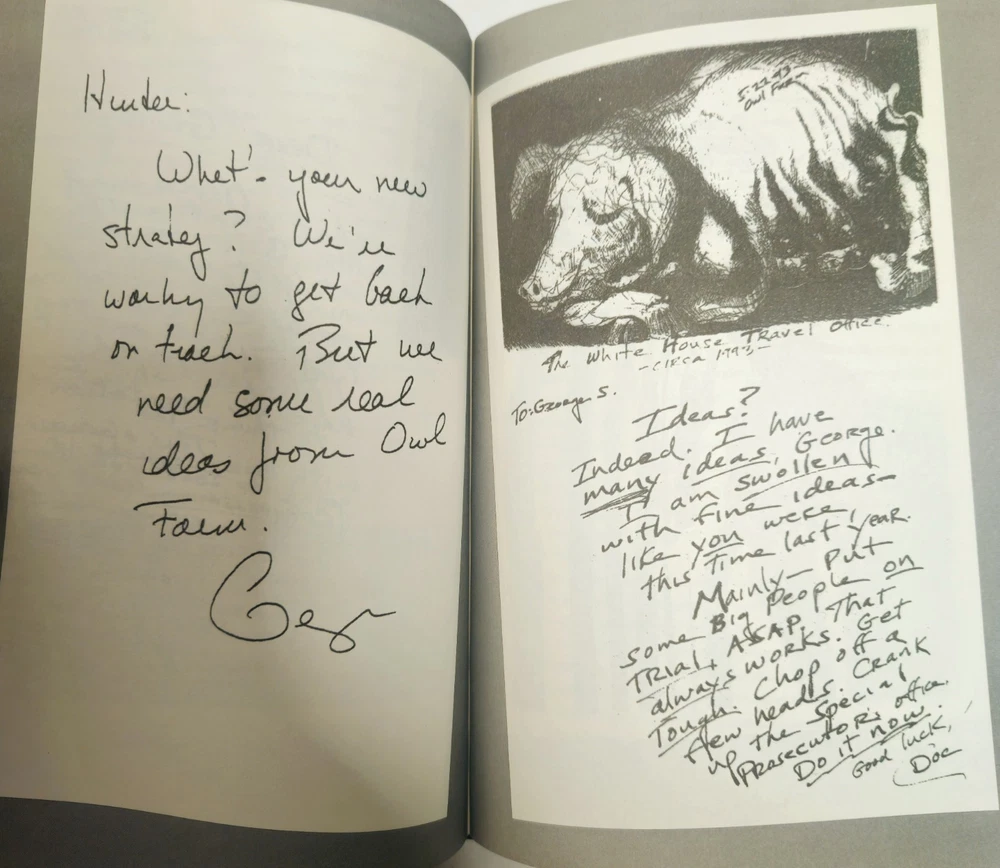 Hunter:
What's your new
strategy? We're
working to get back
on track. But we
need some real
ideas from Owl
Farm.
George
5-22-93
Owl Farm
The White House Travel Office.
-CIRCA 1993-
To: George S.
Ideas?
Indeed. I have
many ideas, George.
I am swollen
with fine ideas-
like you were,
this time last year.
Mainly- Put
some Big People on
TRIAL, ASAP. That
always works. Get
Tough. Chop off a
few heads. Crank
up the Special
Prosecutor's office.
Do it now.
Good luck,
Doc